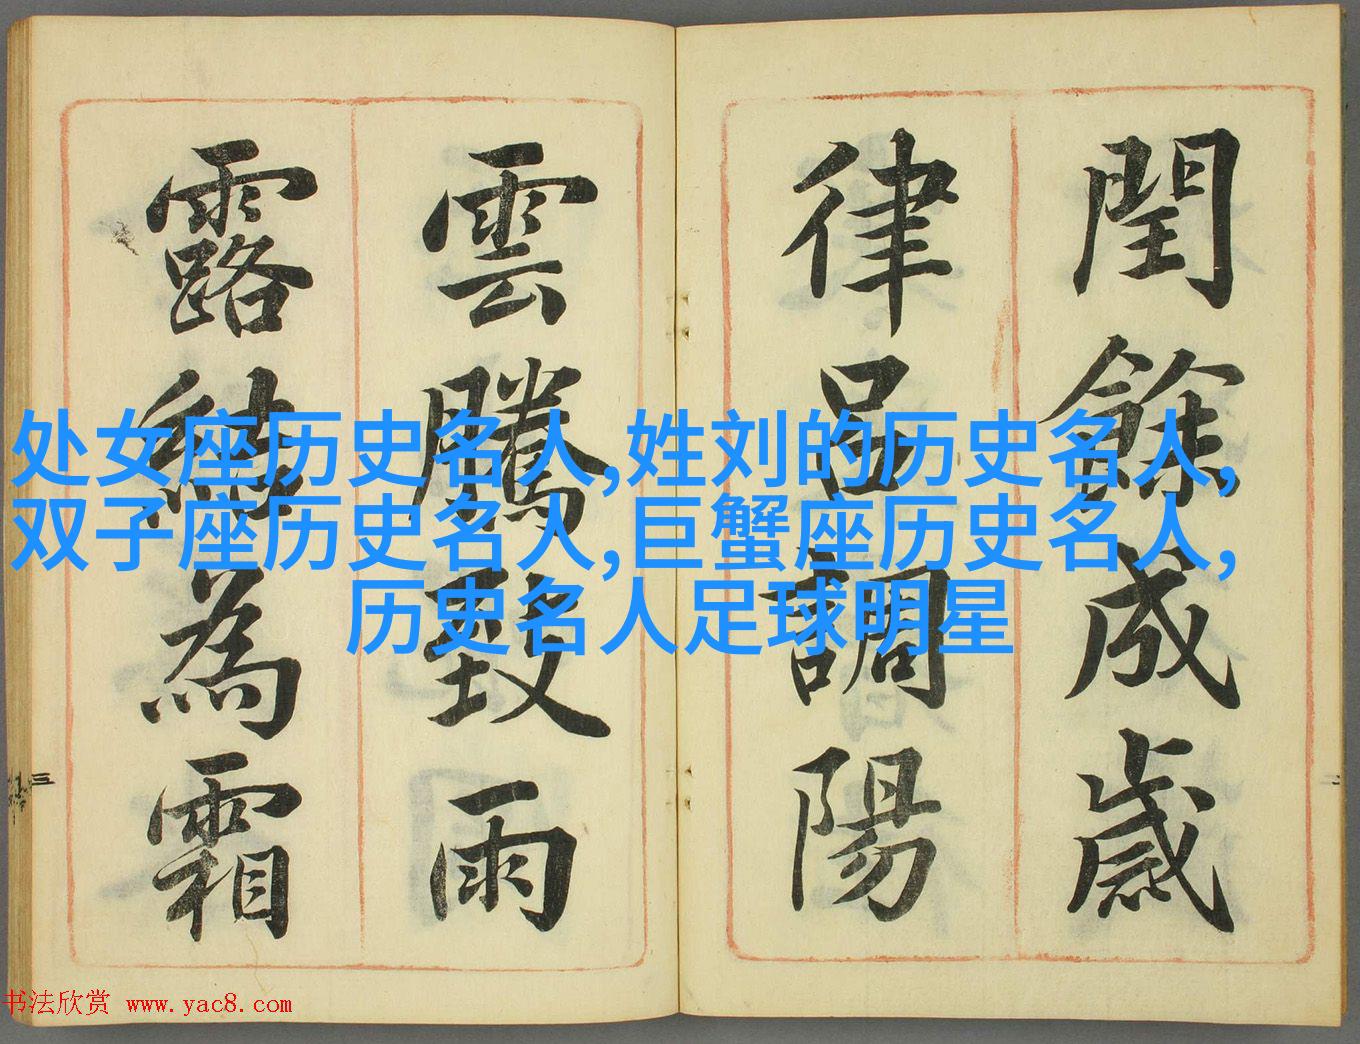 閏餘成歲
律呂調陽
雲騰致雨
露結為霜
处女座历史名人,姓刘的历史名人,
双子座历史名人,巨蟹座历史名人,
历史名人足球明星
三
二
书法欣赏 www.yac8.com